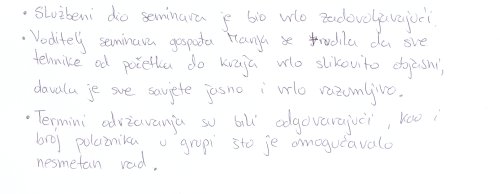 • Službeni dio seminara je bio vrlo zadovoljavajući.
• Voditelj seminara gospođa Marija se trudila da sve
tehnike od početka do kraja vrlo slikovito objasni,
davala je sve savjete jasno i vrlo razumljivo.
• Termini održavanja su bili odgovarajući, kao i
broj polaznika u grupi što je omogućavalo
nesmetan rad.